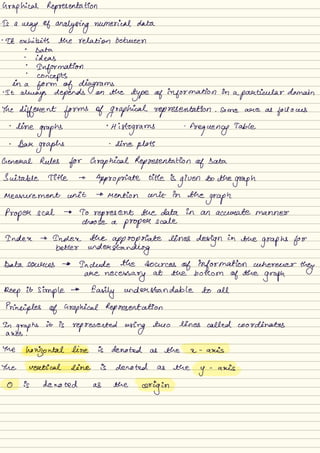 Graphical Representation
Is a way of analysing numerical data
• It exhibits the relation between
• Data
• ideas
• Information
• concepts
in a form of diagrams
• It always depends on the type of information in a particular domain
The different forms of graphical representation. Some are as follows
• line graphs • Histograms • Frequency Table
• Bar graphs • line plots
General Rules for Graphical Representation of Data
Suitable Title → Appropriate title is given to the graph
Measurement unit → Mention unit in the graph
Proper scal → To represent the data in an accurate manner
choose a proper scale
Index → Index the appropriate lines design in the graphs for
better understanding
Data sources → Include the sources of information wherever they
are necessary at the bottom of the graph
Keep it Simple → Easily understandable to all
Principles of Graphical Representation
In graphs it is represented using two lines called coordinates
axes.
The horizontal line is denoted as the x - axis
The vertical line is denoted as the y - axis
O is denoted as the origin